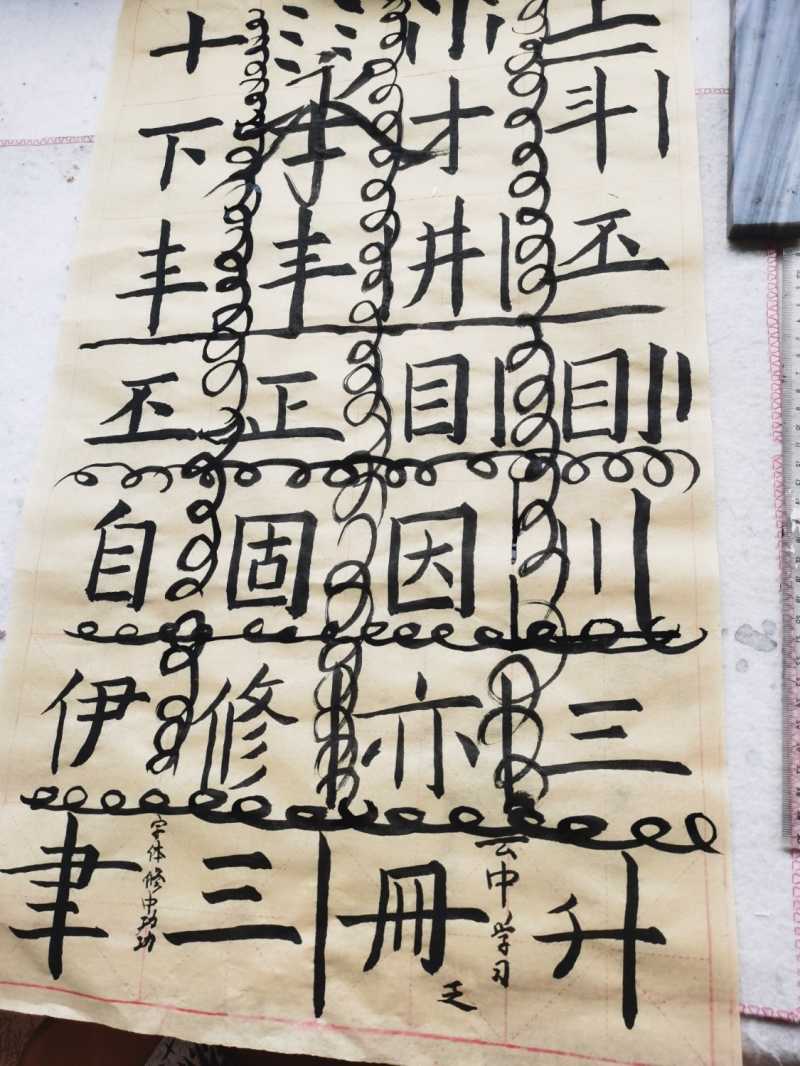 十 上
下 才 斗
丰 丰 井 丕
丕 正 目 目
自 固 因 川
伊 修 亦 三
聿 三 冊 升
字体修中功功
云中学习
王